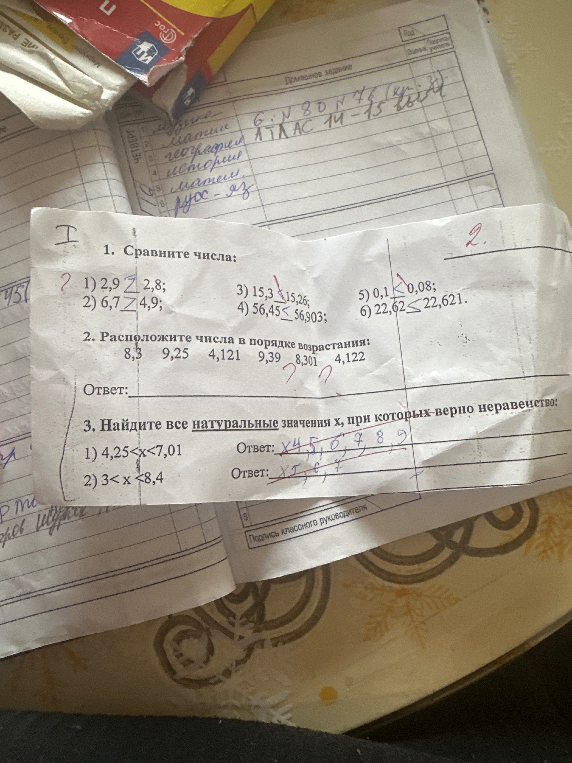 П
Рос
Год
Домашнее задание
Оценка
матем
география
история
матем.
русс-яз
6. N 80 N 78
АТЛАС 14-15
I
2.
1. Сравните числа:
? 1) 2,9 > 2,8; 3) 15,3 < 15,26; 5) 0,1 < 0,08;
2) 6,7 > 4,9; 4) 56,45 < 56,903; 6) 22,62 < 22,621.
2. Расположите числа в порядке возрастания:
8,3 9,25 4,121 9,39 8,301 4,122
? ?
Ответ:
3. Найдите все натуральные значения х, при которых верно неравенство:
1) 4,25<x<7,01 Ответ: х4,5,6,7,8 9
2) 3< x <8,4 Ответ: х5,6,7
Подпись классного руководителя